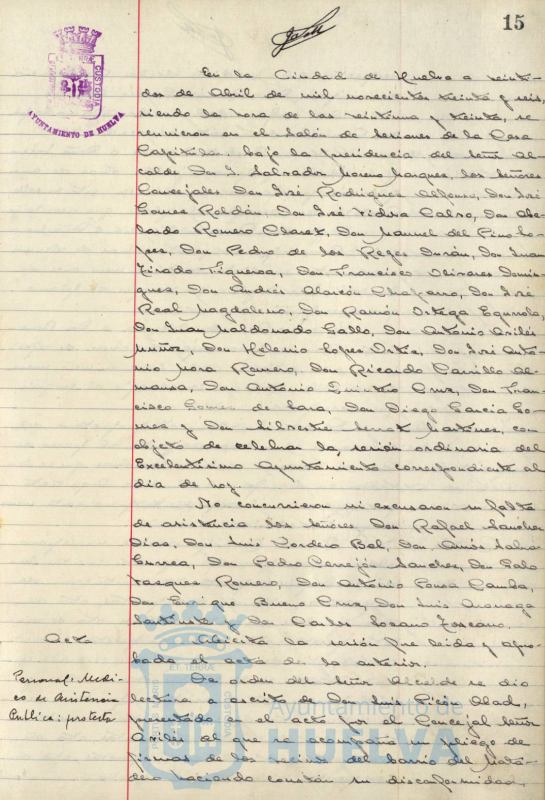 15
AYUNTAMIENTO DE HUELVA
CUSTODIA
En la Ciudad de Huelva a veinti-
dos de Abril de mil novecientos treinta y seis,
siendo la hora de las veintiuna y treinta, se
reunieron en el salón de sesiones de la Casa
Capitular, bajo la presidencia del Señor Al-
calde Don J. Salvador Moreno Marquez, los señores
Concejales Don José Rodríguez Alfonso, Don José
Gomez Roldán, Don José Vidosa Calvo, Don Abe-
lardo Romero Claret, Don Manuel del Pino Lo-
pez, Don Pedro de los Reyes Durán, Don Juan
Tirado Figueroa, Don Francisco Olivares Domin-
guez, Don Andrés Alarcón Chaparro, Don José
Real Magdaleno, Don Ramón Ortega Equrrola,
Don Juan Maldonado Gallo, Don Antonio Avilés
Muñoz, Don Helenio Lopez Ortiz, Don José Anto-
nio Mora Romero, Don Ricardo Carrillo Al-
mansa, Don Antonio Quintero Cruz, Don Fran-
cisco Gomez de Lara, Don Diego Garcia Go-
mez y Don Silvestre Martinez, con
objeto de celebrar la sesión ordinaria del
Excelentísimo Ayuntamiento correspondiente al
día de hoy.
No concurrieron ni excusaron su falta
de asistencia los señores Don Rafael Sanchez
Díaz, Don Luis Cordero Bel, Don Amós Sabrás
Gurrea, Don Pedro Cerrejón Sanchez, Don Galo
Vazquez Romero, Don Antonio Pousa Camba,
Don Enrique Bueno Cruz, Don Luis
y Don Carlos Lozano Toscano.
Acta
Abierta la sesión fue leída y apro-
bada el acta de la anterior.
Personal: Medi-
co de Asistencia
Publica: protesta
De orden del Señor Alcalde se dio
lectura a escrito de Don Abad,
presentado en el acto por el Concejal Señor
Avilés al que se acompaña un pliego de
firmas de los vecinos del barrio del Mata-
dero haciendo constar su disconformidad,
Ayuntamiento de
HUELVA